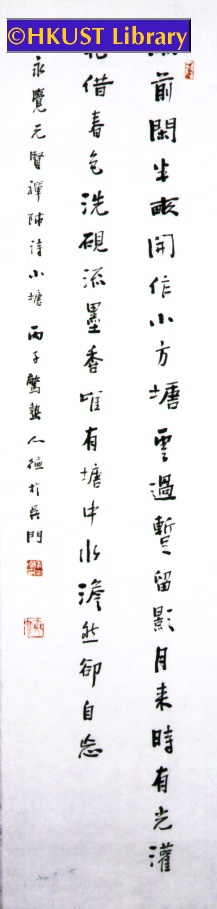 ©HKUST Library
前閑半畝開作小方塘雲過暫留影月来時有光灌
花借春色洗硯流墨香唯有塘中水澹然卻自忘
永覺元賢禪師詩小塘 丙子驚蟄人德於吳門